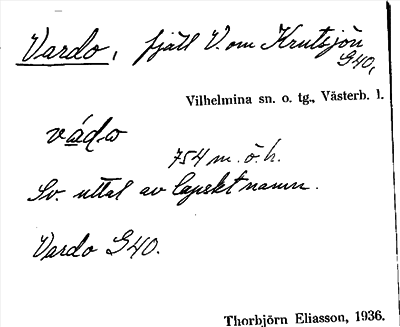 Vardo, fjäll V. om Krutsjön
G40,
Vilhelmina sn. o. tg., Västerb. l.
vádo
754 m. ö. h.
Sv. uttal av lapskt namn.
Vardo G40.
Thorbjörn Eliasson, 1936.